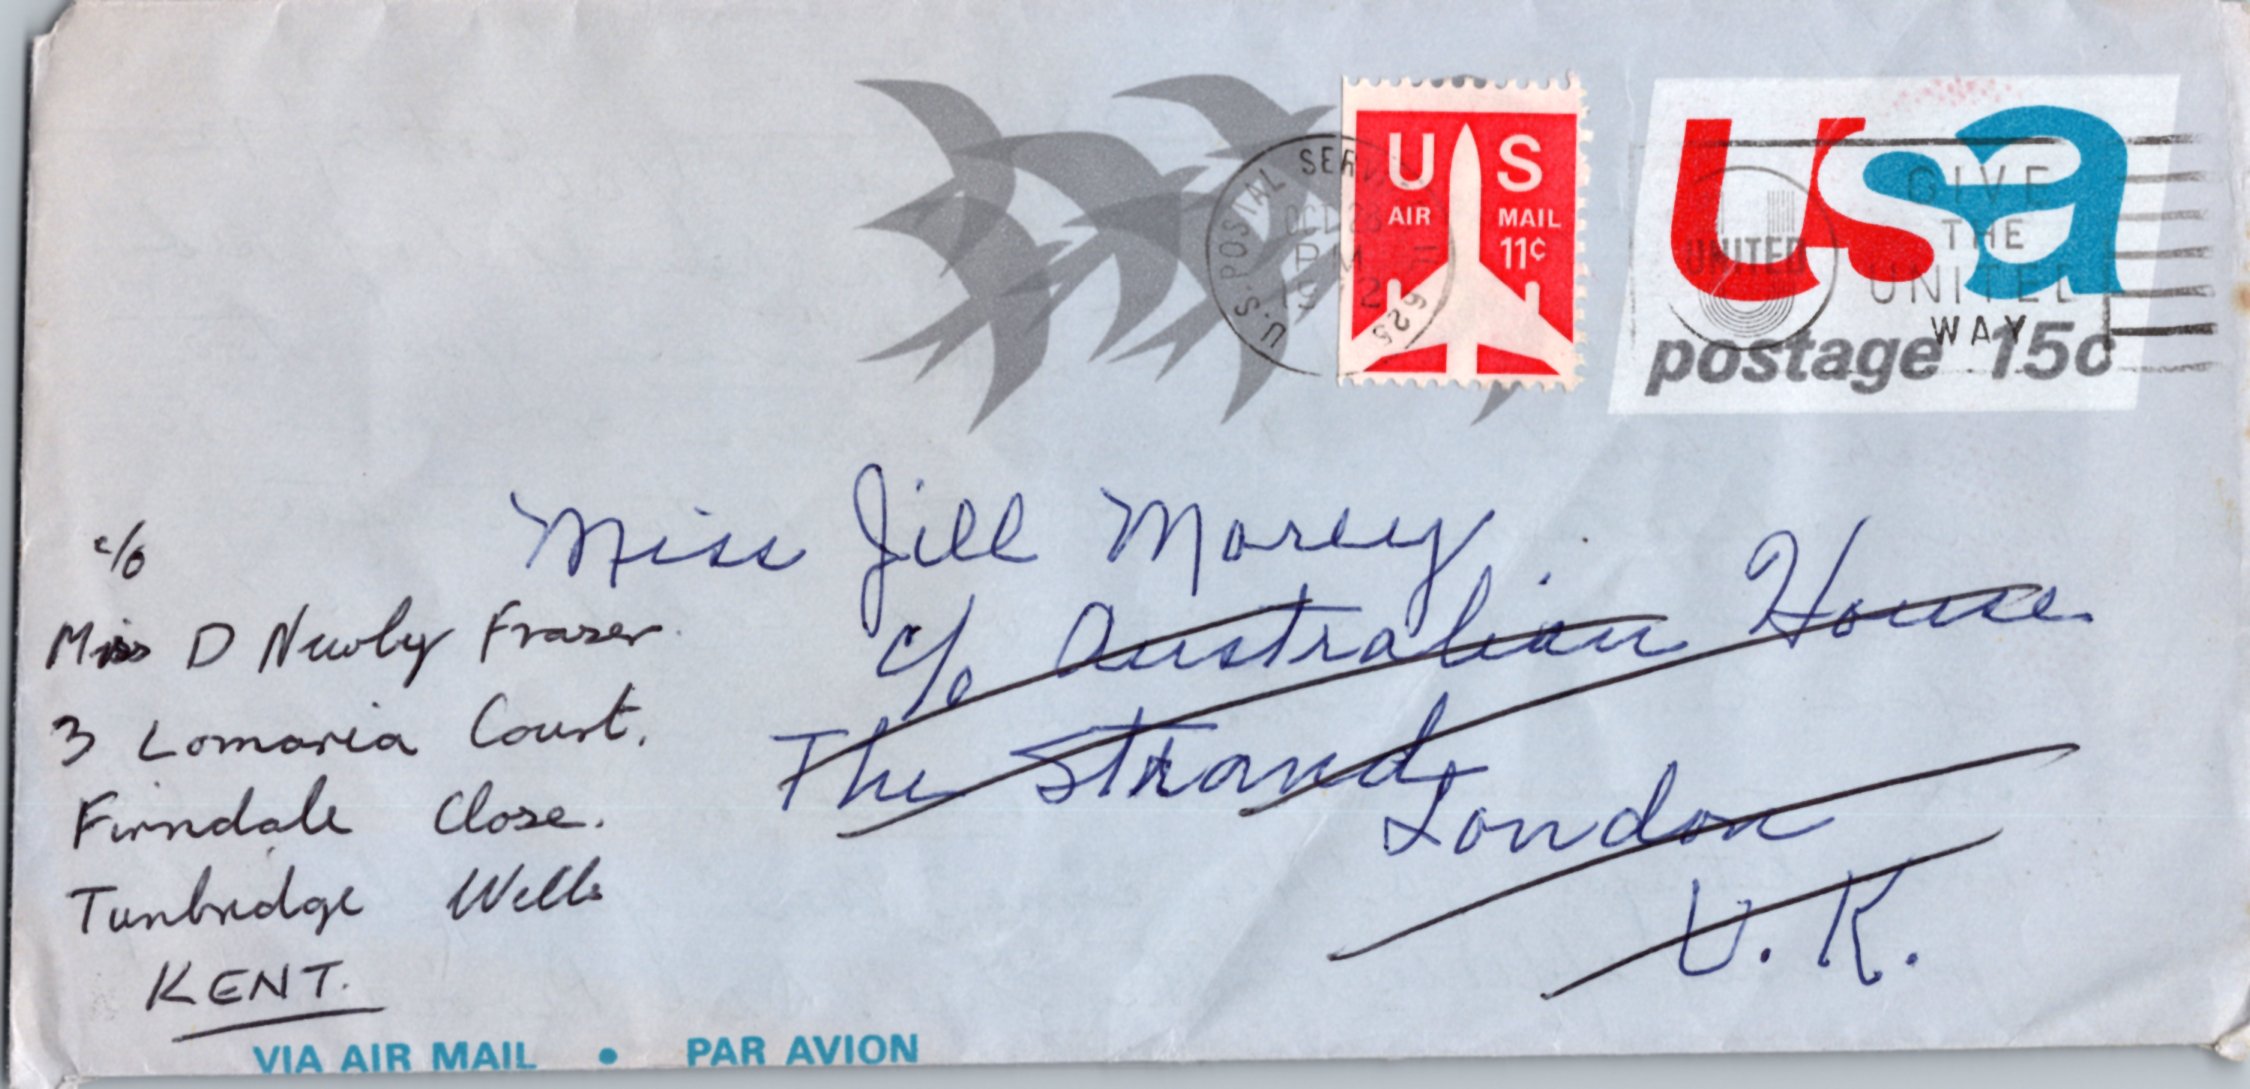 U.S. POSTAL SERV
OCT 28
PM
19 2
625
US
AIR MAIL
11¢
usa
postage 15c
UNITED
GIVE
THE
UNITED
WAY
Miss Jill Morey
c/o Australian House
The Strand,
London
U.K.
c/o
Miss D Newby Fraser.
3 Lomaria Court.
Firndale Close.
Tunbridge Wells
KENT.
VIA AIR MAIL • PAR AVION